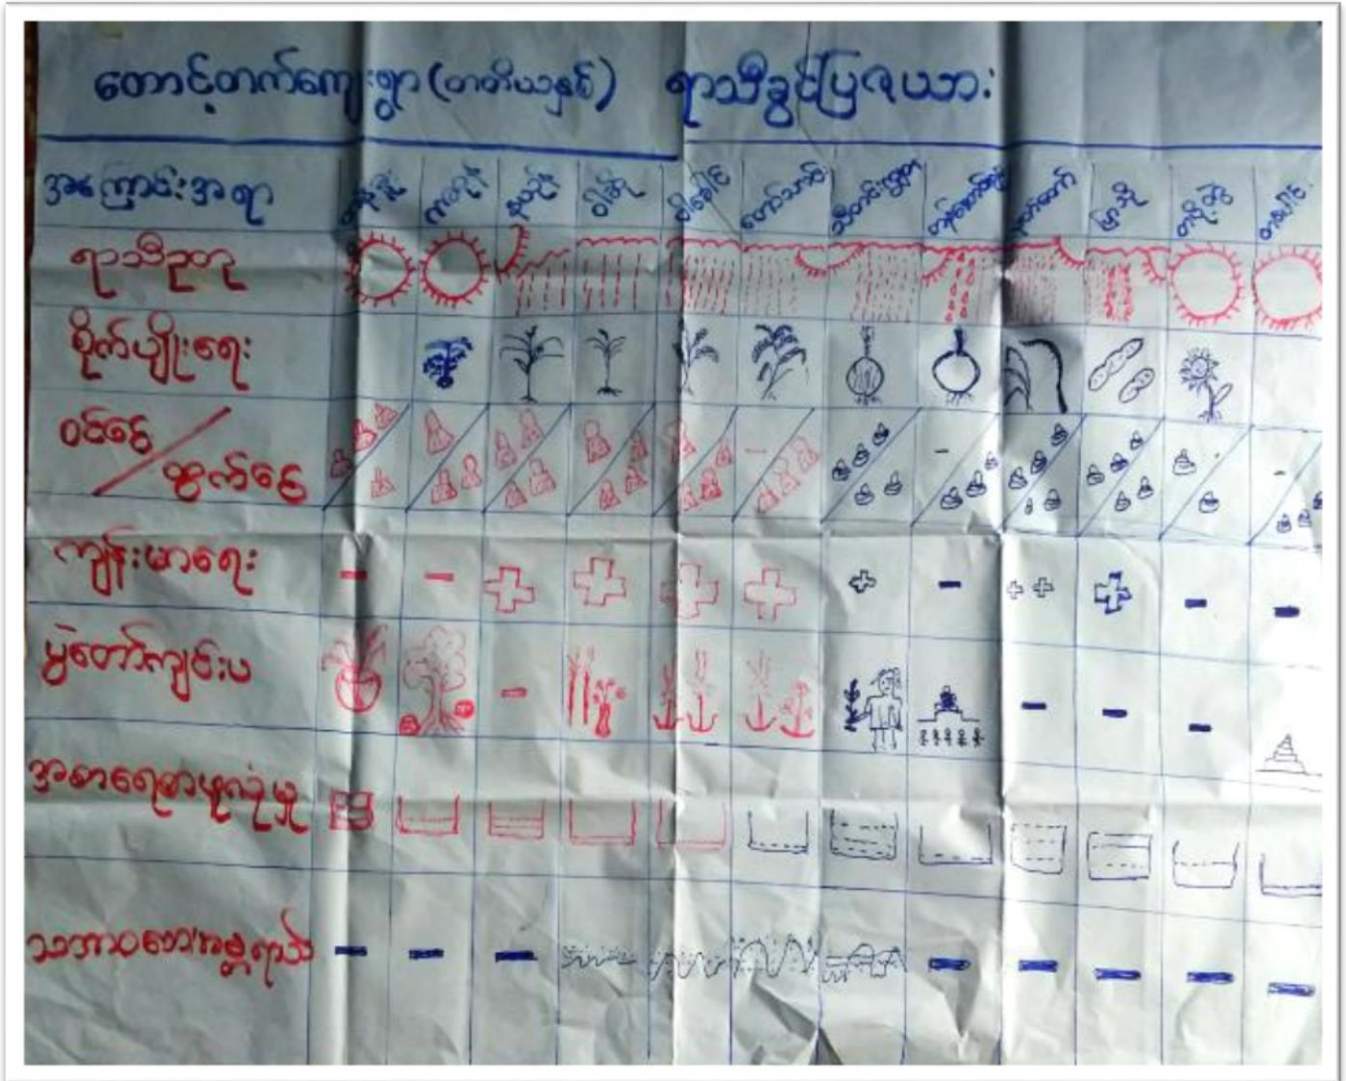 တောင့်တက်ကျေးရွာ (တတိယနှစ်) ရာသီခွင်ပြဇယား
အကြောင်းအရာ တန်ခူး ကဆုန် နယုန် ဝါဆို ဝါခေါင် တော်သလင်း သီတင်းကျွတ် တန်ဆောင်မုန်း နတ်တော် ပြာသို တပို့တွဲ တပေါင်း
ရာသီဥတု
စိုက်ပျိုးရေး
ဝင်ငွေ / ထွက်ငွေ
ကျန်းမာရေး
ပွဲတော်ကျင်းပ
အစားရေစာဖူလုံမှု
သဘာဝဘေးအန္တရာယ်